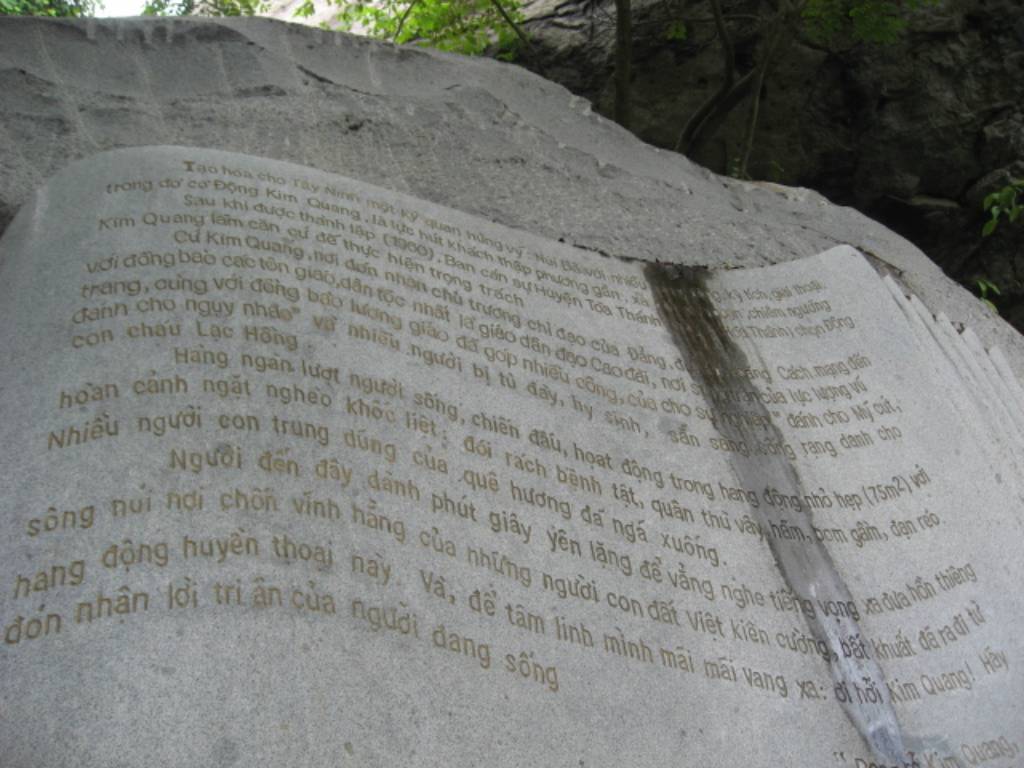 Tạo hóa cho Tây Ninh một kỳ quan hùng vỹ: Núi Bà với nhiều kỳ tích, giai thoại
trong đó có Động Kim Quang, là lực hút khách thập phương gần, xa chiêm ngưỡng
Sau khi được thành lập (1960), Ban cán sự Huyện Tòa Thánh chọn Động
Kim Quang làm căn cứ để thực hiện trọng trách
Cứ Kim Quang, nơi đón nhận chủ trương chỉ đạo của Đảng, Cách mạng đến
với đồng bào các tôn giáo, dân tộc nhất là giáo dân đạo Cao đài, nơi của lực lượng vũ
trang, cùng với đồng bào lương giáo đã góp nhiều công, của cho sự dành cho Mỹ cút,
đánh cho ngụy nhào" và nhiều người bị tù đày, hy sinh, sẵn sàng răng đánh cho
con cháu Lạc Hồng
Hàng ngàn lượt người sống, chiến đấu, hoạt động trong hang động nhỏ hẹp (75m2) với
hoàn cảnh ngặt nghèo khốc liệt: đói rách bệnh tật, quân thù vây hãm, bom gầm, đạn réo.
Nhiều người con trung dũng của quê hương đã ngã xuống.
Người đến đây dành phút giây yên lặng để vẳng nghe tiếng vọng xa đưa hồn thiêng
sông núi nơi chốn vĩnh hằng của những người con đất Việt kiên cường, bất khuất đã ra đi từ
hang động huyền thoại này. Và, để tâm linh mình mãi mãi vang xa: ơi hỡi Kim Quang! Hãy
đón nhận lời tri ân của người đang sống
Kim Quang,